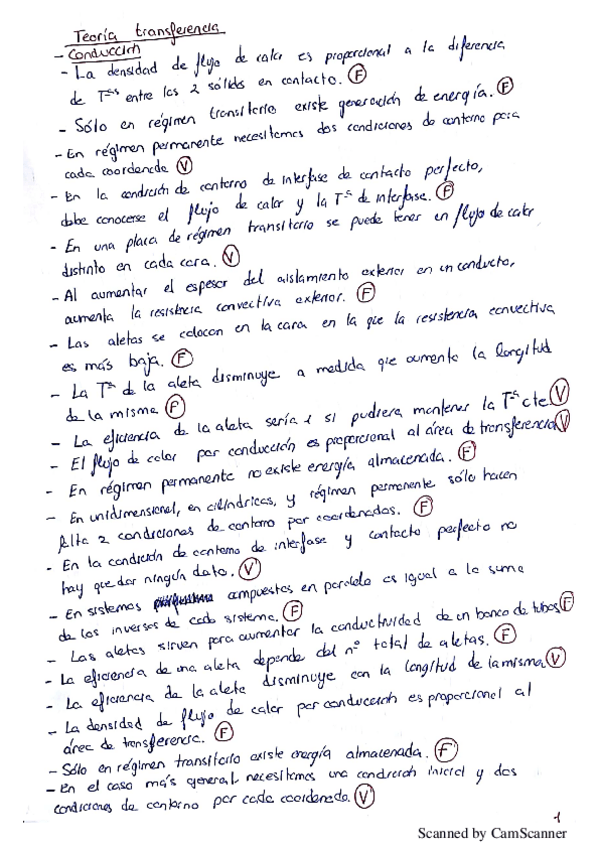 Teoría transferencia
- Conducción
- La densidad de flujo de calor es proporcional a la diferencia
de Tªs entre los 2 sólidos en contacto. (F)
- Sólo en régimen transitorio existe generación de energía. (F)
- En régimen permanente necesitamos dos condiciones de contorno para
cada coordenada (V)
- En la condición de contorno de interfase de contacto perfecto,
debe conocerse el flujo de calor y la Tª de interfase. (F)
- En una placa de régimen transitorio se puede tener un flujo de calor
distinto en cada cara. (V)
- Al aumentar el espesor del aislamiento exterior en un conducto,
aumenta la resistencia convectiva exterior. (F)
- Las aletas se colocan en la cara en la que la resistencia convectiva
es más baja. (F)
- La Tª de la aleta disminuye a medida que aumenta la longitud
de la misma (F)
- La eficiencia de la aleta sería 1 si pudiera mantener la Tª cte (V)
- El flujo de calor por conducción es proporcional al área de transferencia (V)
- En régimen permanente no existe energía almacenada. (F)
- En unidimensional, en cilíndricas, y régimen permanente sólo hacen
falta 2 condiciones de contorno por coordenadas. (F)
- En la condición de contorno de interfase y contacto perfecto no
hay que dar ningún dato. (V)
- En sistemas compuestos en paralelo es igual a la suma
de los inversos de cada sistema. (F)
- Las aletas sirven para aumentar la conductividad de un banco de tubos (F)
- La eficiencia de una aleta depende del nº total de aletas. (F)
- La eficiencia de la aleta disminuye con la longitud de la misma (V)
- La densidad de flujo de calor por conducción es proporcional al
área de transferencia. (F)
- Sólo en régimen transitorio existe energía almacenada. (F)
- En el caso más general necesitamos una condición inicial y dos
condiciones de contorno por cada coordenada. (V)
1
Scanned by CamScanner